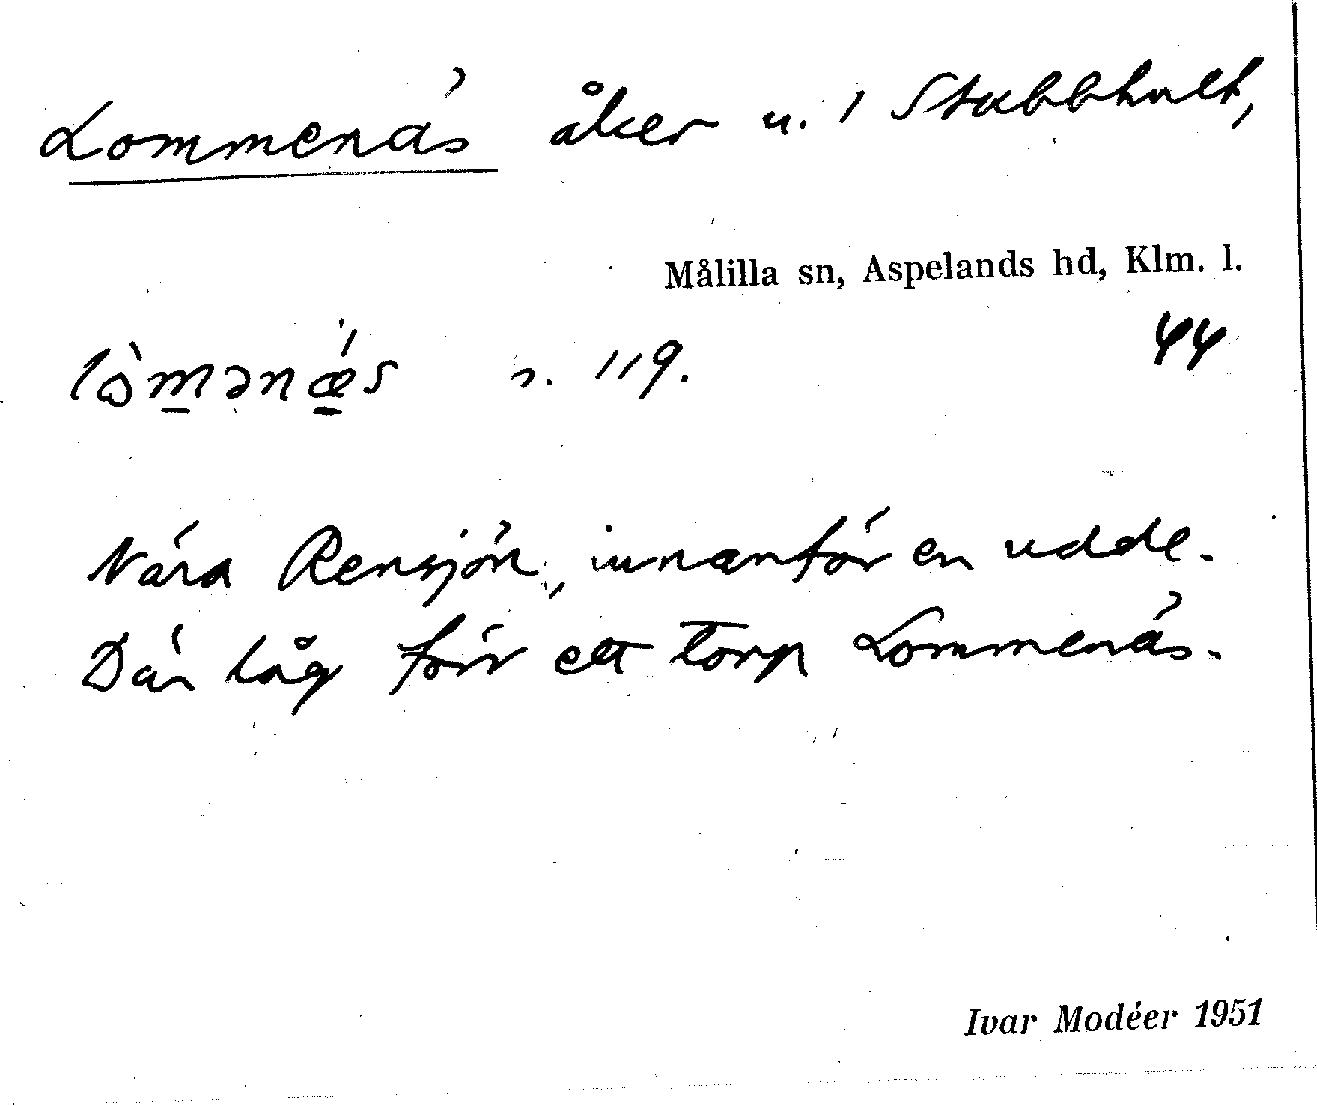 Lommenäs åker u. 1 Stubbhult,
Målilla sn, Aspelands hd, Klm. l.
lòmənǽs n. 119. 44
Nära Rensjön, innanför en udde.
Där låg förr ett torp Lommenäs.
Ivar Modéer 1951